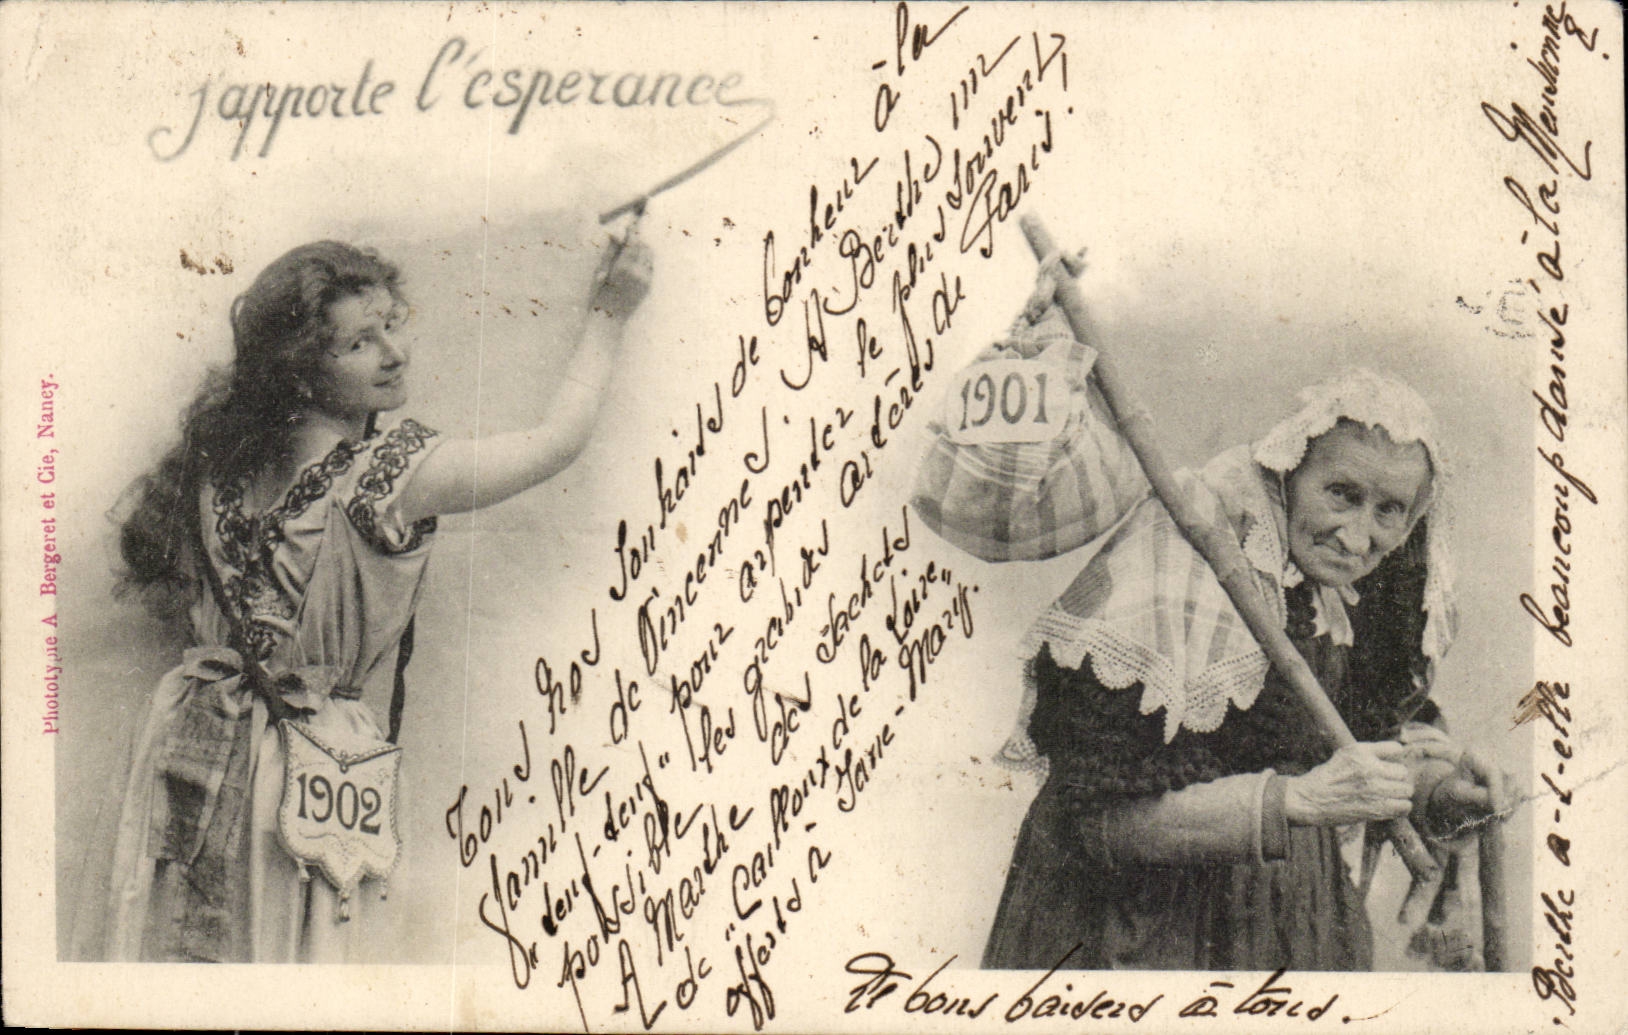 j'apporte l'ésperance
Tous nos souhaits de bonheur à la
famille de Vincennes. A Berthe un
"teuf-teuf" pour arpenter le plus souvent
possible les grabides artères de Paris!
A Marthe des sachets
de "Cailloux de la Loire"
offerts Jane-Mary.
De bons baisers à tous.
Berthe a-t-elle beaucoup dansé à la Meusienne?
1901
1902
Phototypie A Bergeret et Cie, Nancy.